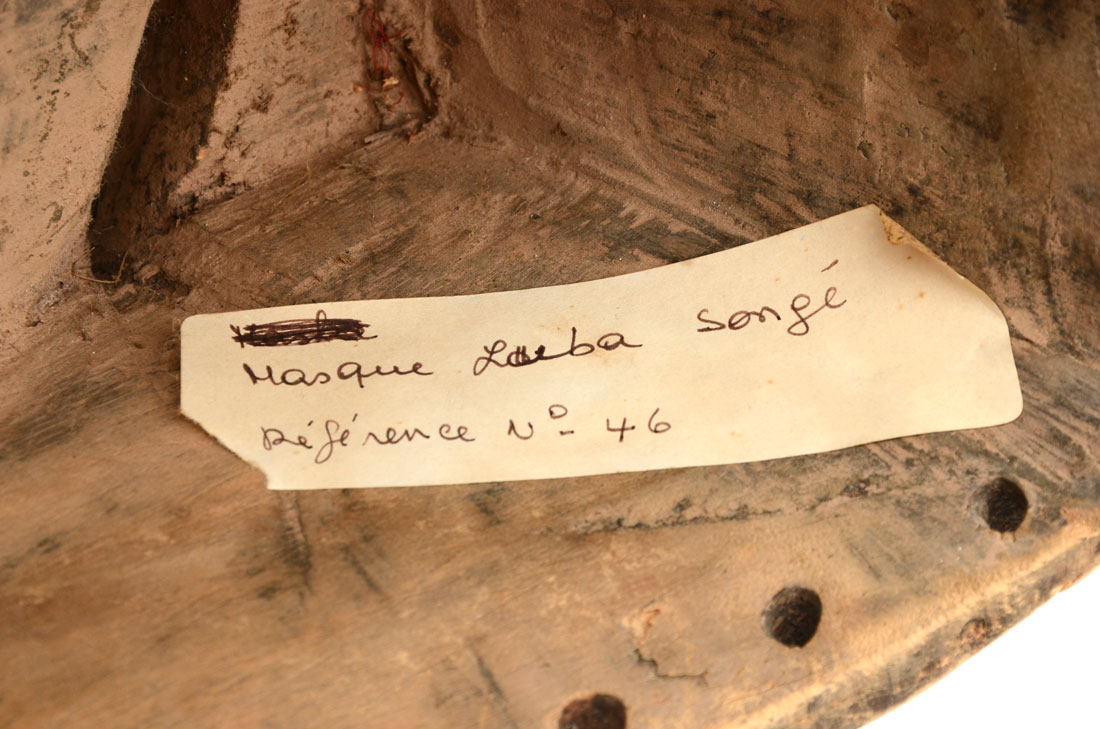 Masque Luba Songé
Référence N° 46